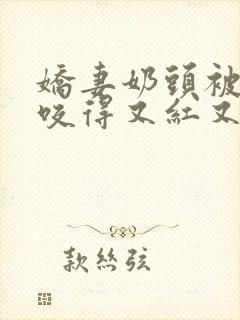 嬌妻奶頭被
咬得又紅又
款絲弦